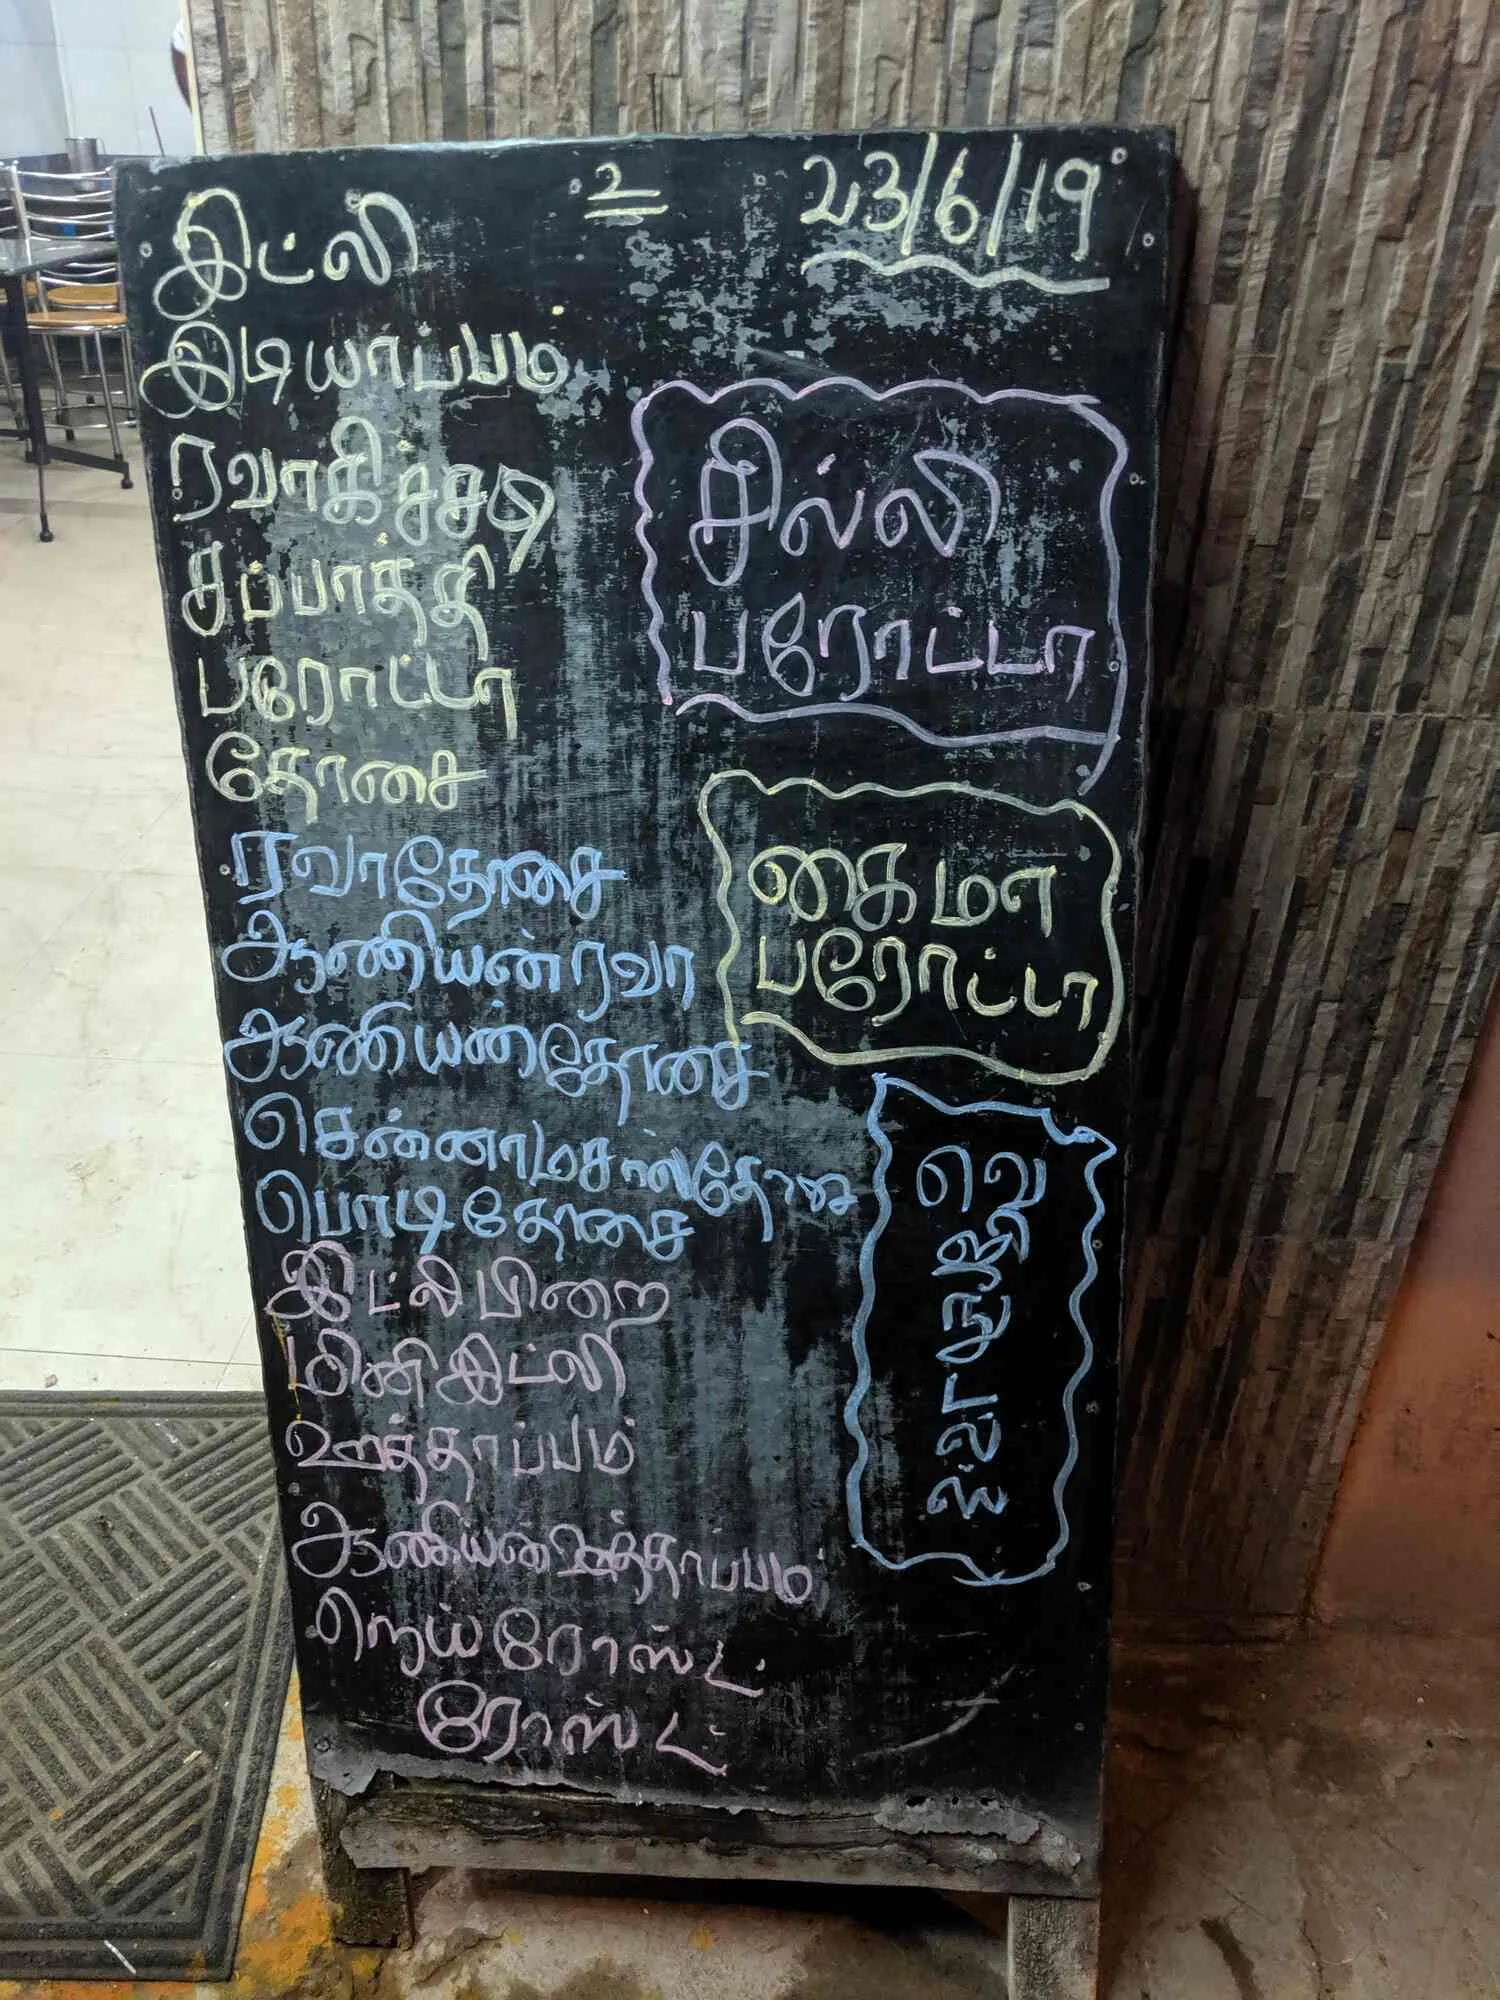 உ
23/6/19
இட்லி
இடியாப்பம்
ரவாகிச்சடி
சப்பாத்தி
பரோட்டா
தோசை
ரவாதோசை
ஆனியன்ரவா
ஆனியன்தோசை
பொடிதோசை
இட்லி
மினி இட்லி
ஊத்தாப்பம்
ஆனியன்ஊத்தாப்பம்
நெய் ரோஸ்ட்
ரோஸ்ட்
சில்லி
பரோட்டா
கைமா
பரோட்டா